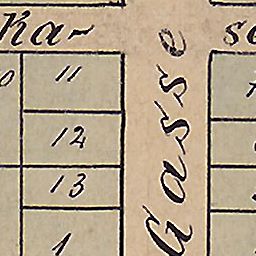 Ka-
se
11
12
13
1
Gasse